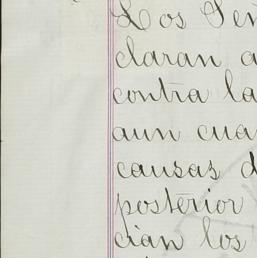 Los Señ
claran a
contra la
aun cua
causas d
posterior
cian los